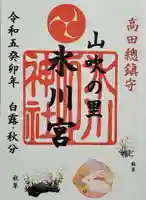 高田總鎮守
山吹の里
氷川宮
氷川
神社
令和五癸卯年 白露 秋分